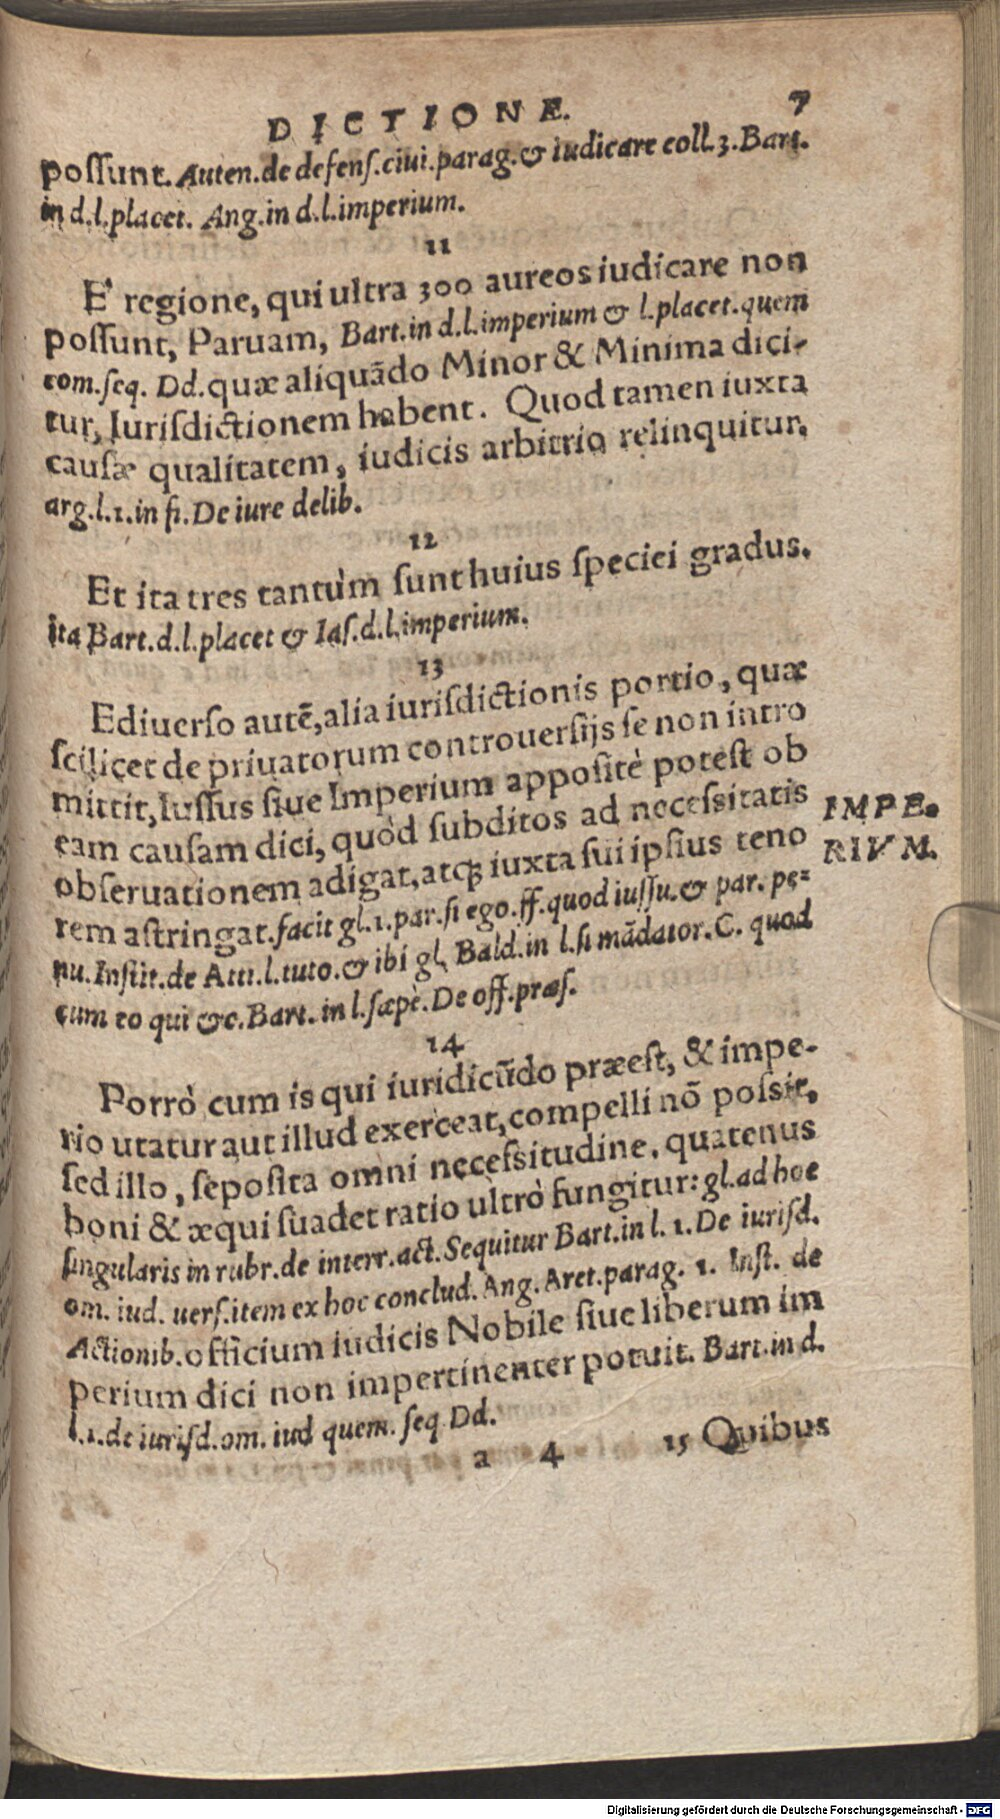 DICTIONE. 7
possunt. Auten. de defens. ciui. parag. & iudicare coll. 3. Bart.
in d. l. placet. Ang. in d. l. imperium.
11
E' regione, qui ultra 300 aureos iudicare non
possunt, Paruam, Bart. in d. l. imperium & l. placet. quem
com. seq. Dd. quæ aliquãdo Minor & Minima dici-
tur, Iurisdictionem habent. Quod tamen iuxta
causæ qualitatem, iudicis arbitrio relinquitur.
arg. l. 1. in fi. De iure delib.
12
Et ita tres tantùm sunt huius speciei gradus.
ita Bart. d. l. placet & Ias. d. l. imperium.
13
Ediuerso autẽ, alia iurisdictionis portio, quæ
scilicet de priuatorum controuersijs se non intro
mittit, Iussus siue Imperium appositè potest ob
eam causam dici, quòd subditos ad necessitatis
IMPE-
RIVM.
obseruationem adigat, atq; iuxta sui ipsius teno
rem astringat. facit gl. 1. par. si ego. ff. quod iussu. & par. pe-
nu. Instit. de Atti. l. tuto. & ibi gl. Bald. in l. si mãdator. C. quod
cum eo qui &c. Bart. in l. sæpè. De off. præs.
14
Porrò cum is qui iuridicũdo præest, & impe-
rio utatur aut illud exerceat, compelli nõ possit,
sed illo, seposita omni necessitudine, quatenus
boni & æqui suadet ratio ultrò fungitur: gl. ad hoc
singularis in rubr. de interr. act. Sequitur Bart. in l. 1. De iurisd.
om. iud. uers. item ex hoc conclud. Ang. Aret. parag. 1. Inst. de
Actionib. officium iudicis Nobile siue liberum im
perium dici non impertinenter potuit. Bart. in d.
l. 1. de iurisd. om. iud quem. seq Dd.
a 4 15 Quibus
Digitalisierung gefördert durch die Deutsche Forschungsgemeinschaft - DFG